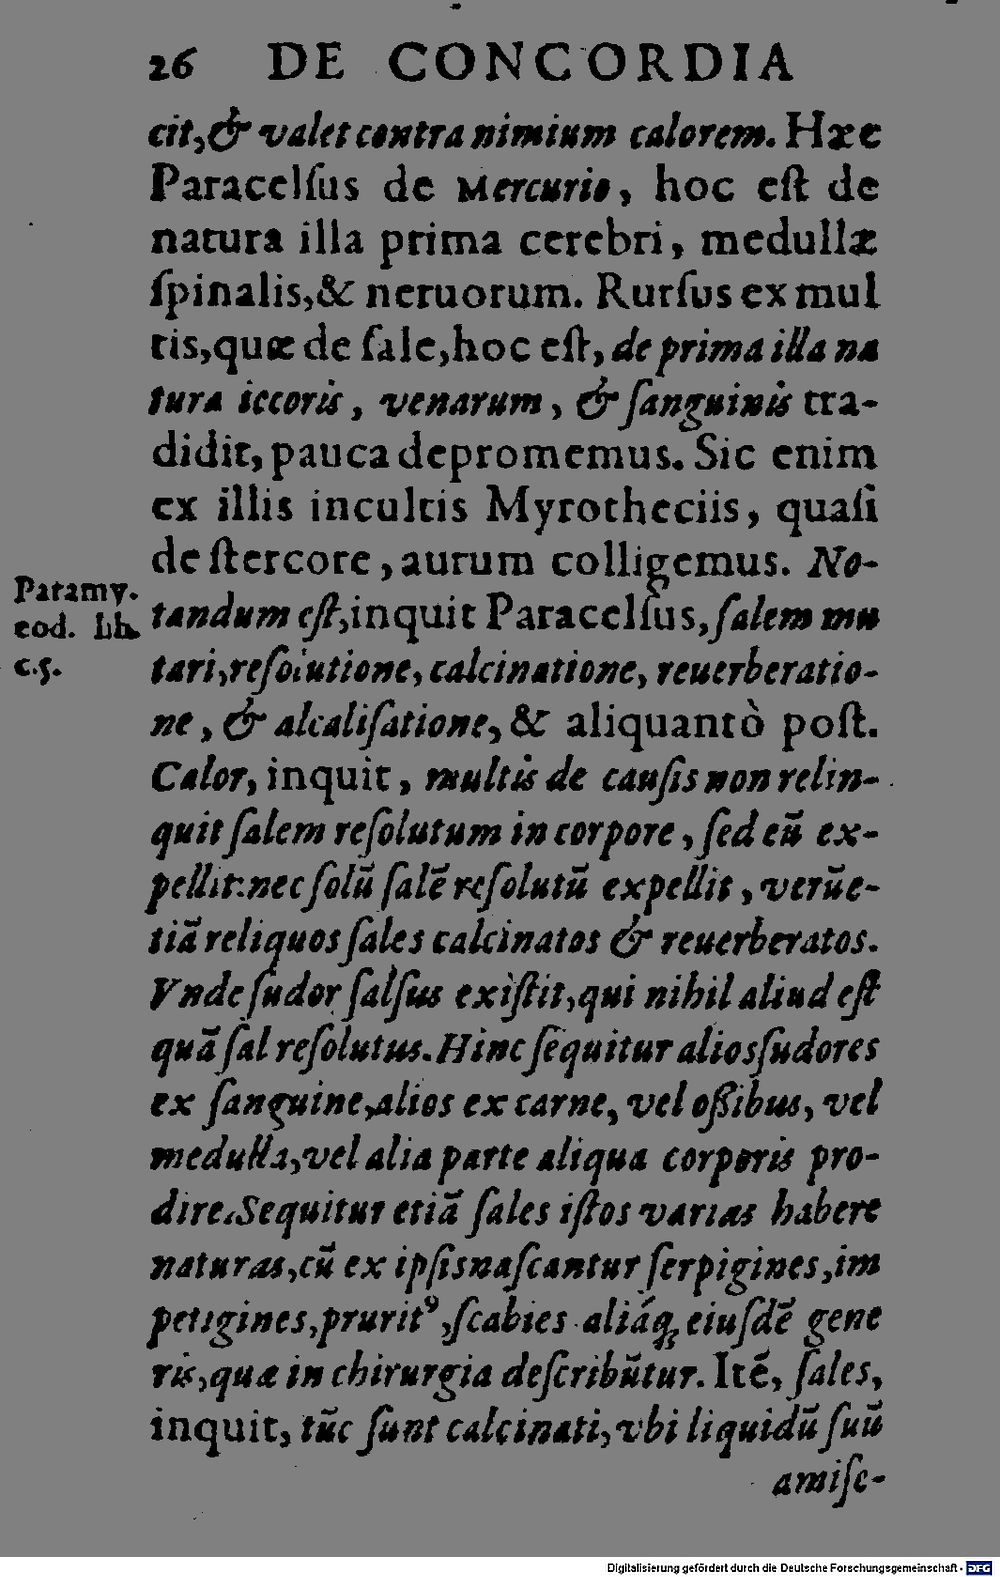 26 DE CONCORDIA
cit, & valet contra nimium calorem. Hæc
Paracelſus de Mercurio, hoc eſt de
natura illa prima cerebri, medullæ
ſpinalis, & neruorum. Rurſus ex mul
tis, quæ de ſale, hoc eſt, de prima illa na
tura iecoris, venarum, & ſanguinis tra-
didit, pauca depromemus. Sic enim
ex illis incultis Myrotheciis, quaſi
de ſtercore, aurum colligemus. No-
Paramy.
eod. lib.
c.5.
tandum eſt, inquit Paracelſus, ſalem mu
tari, reſolutione, calcinatione, reuerberatio-
ne, & alcaliſatione, & aliquantò poſt.
Calor, inquit, multis de cauſis non relin-
quit ſalem reſolutum in corpore, ſed eū ex-
pellit: nec ſolū ſalē reſolutū expellit, verūe-
tiā reliquos ſales calcinatos & reuerberatos.
Vnde ſudor ſalſus exiſtit, qui nihil aliud eſt
quā ſal reſolutus. Hinc ſequitur alios ſudores
ex ſanguine, alios ex carne, vel oßibus, vel
medulla, vel alia parte aliqua corporis pro-
dire. Sequitur etiā ſales iſtos varias habere
naturas, cū ex ipſis naſcantur ſerpigines, im
petigines, prurit⁹, ſcabies aliáq; eiuſdē gene
ris, quæ in chirurgia deſcribūtur. Itē, ſales,
inquit, tūc ſunt calcinati, vbi liquidū ſuū
amiſe-
Digitalisierung gefördert durch die Deutsche Forschungsgemeinschaft - DFG